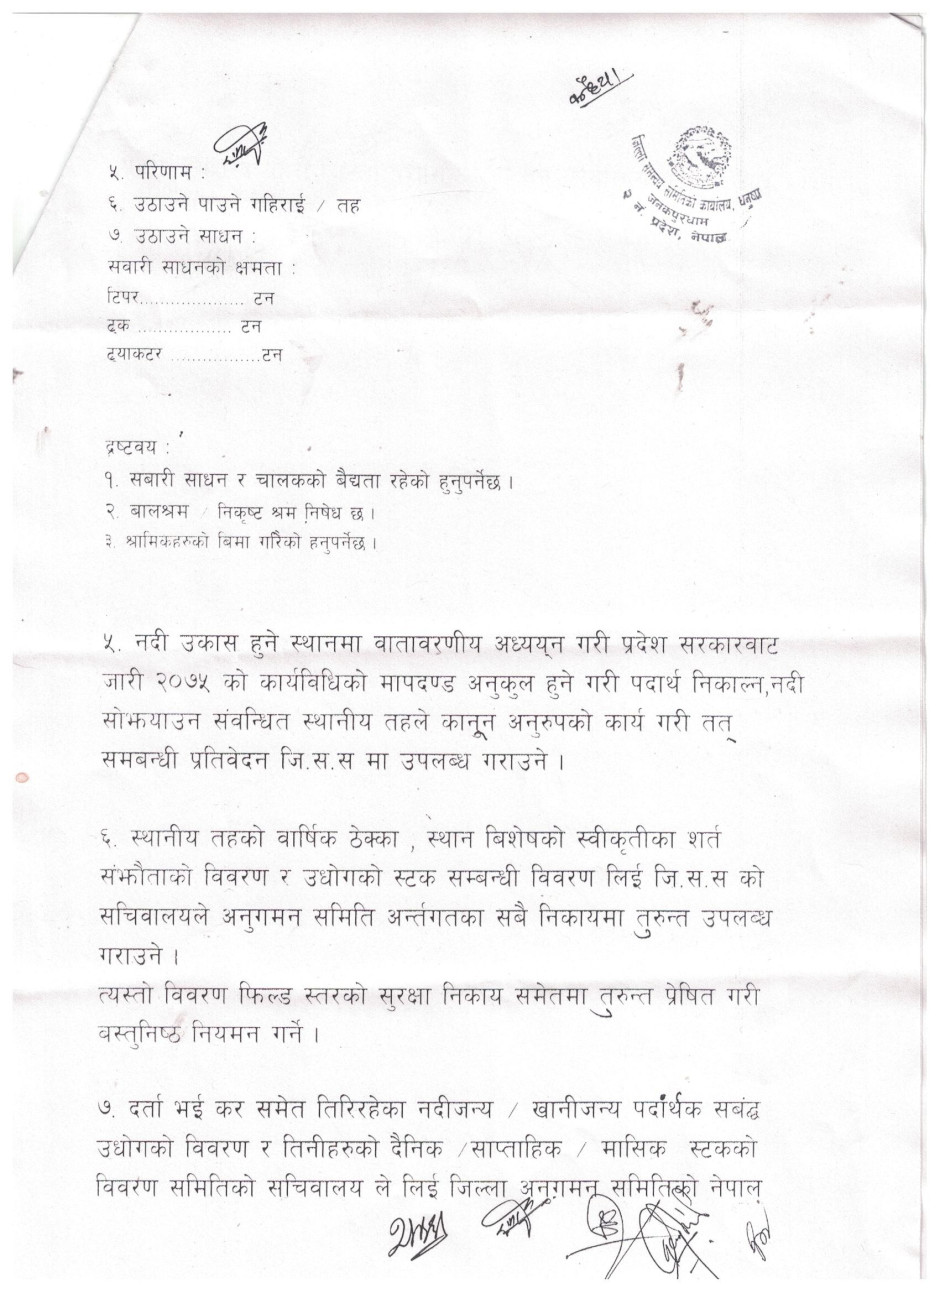 ५. परिणाम :
६. उठाउने पाउने गहिराई / तह
७. उठाउने साधन :
सवारी साधनको क्षमता :
टिपर.................... टन
ट्रक ................. टन
ट्याकटर .................टन
जिल्ला समन्वय समितिको कार्यालय, धनुषा
जनकपुरधाम
२ नं. प्रदेश, नेपाल
द्रष्टवय :
१. सबारी साधन र चालकको बैद्यता रहेको हुनुपर्नेछ ।
२. बालश्रम / निकृष्ट श्रम निषेध छ ।
३. श्रामिकहरुको बिमा गरिको हनुपर्नेछ ।
५. नदी उकास हुने स्थानमा वातावरणीय अध्ययन गरी प्रदेश सरकारवाट
जारी २०७५ को कार्यविधिको मापदण्ड अनुकुल हुने गरी पदार्थ निकाल्न,नदी
सोझयाउन संवन्धित स्थानीय तहले कानून अनुरुपको कार्य गरी तत्
समबन्धी प्रतिवेदन जि.स.स मा उपलब्ध गराउने ।
६. स्थानीय तहको वार्षिक ठेक्का , स्थान बिशेषको स्वीकृतीका शर्त
संझौताको विवरण र उधोगको स्टक सम्बन्धी विवरण लिई जि.स.स को
सचिवालयले अनुगमन समिति अर्न्तगतका सबै निकायमा तुरुन्त उपलब्ध
गराउने ।
त्यस्तो विवरण फिल्ड स्तरको सुरक्षा निकाय समेतमा तुरुन्त प्रेषित गरी
वस्तुनिष्ठ नियमन गर्ने ।
७. दर्ता भई कर समेत तिरिरहेका नदीजन्य / खानीजन्य पदार्थक सबंद्ध
उधोगको विवरण र तिनीहरुको दैनिक /साप्ताहिक / मासिक स्टकको
विवरण समितिको सचिवालय ले लिई जिल्ला अनुगमन समितिको नेपाल